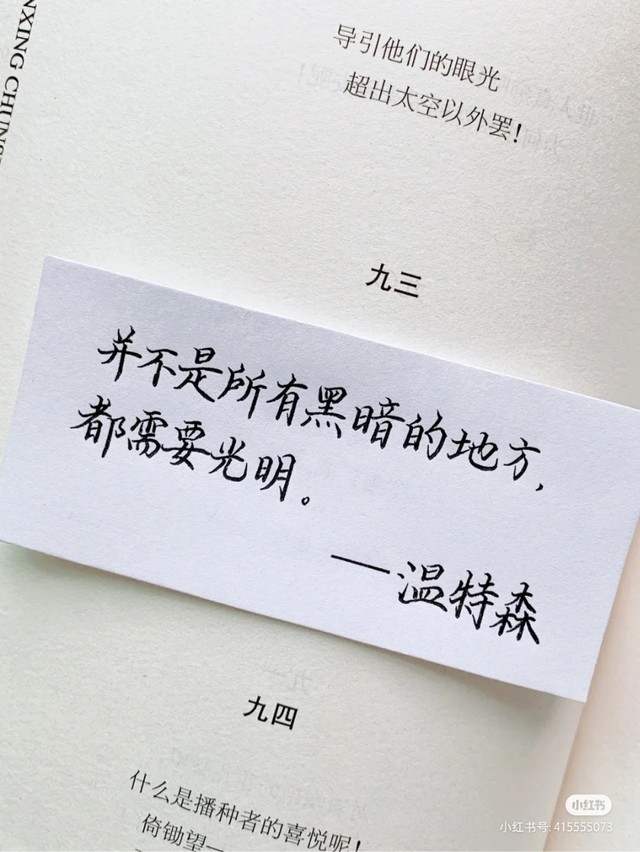 NXING CHUN
导引他们的眼光
超出太空以外罢！
九三
并不是所有黑暗的地方，
都需要光明。
——温特森
九四
什么是播种者的喜悦呢！
倚锄望一
小红书
小红书号: 415555073